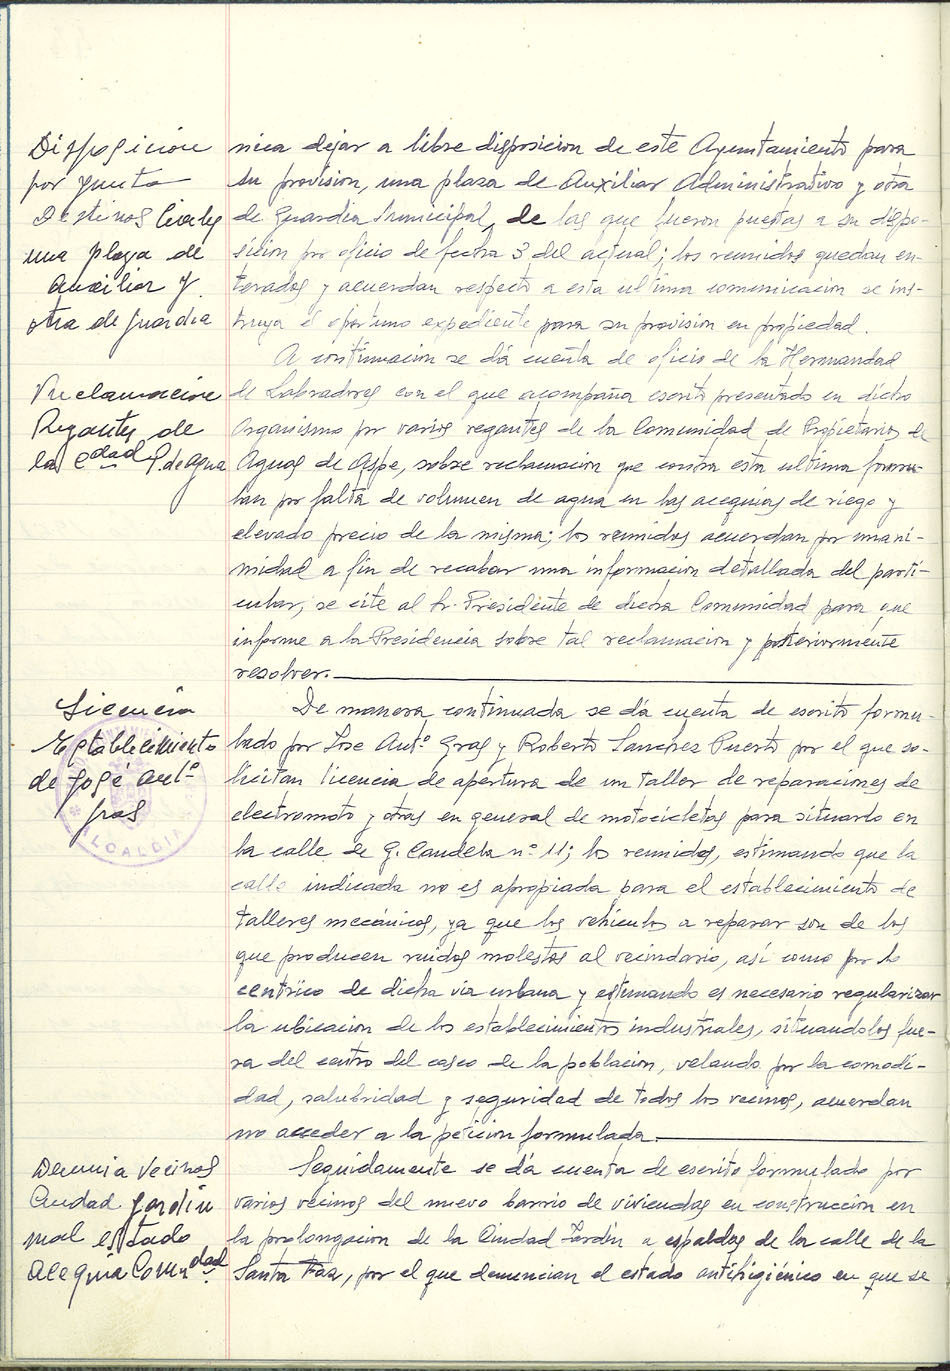 Disposición
por Junta
Destinos Civiles
una plaza de
auxiliar y
otra de guardia
nica dejar a libre disposicion de este Ayuntamiento para
su provision, una plaza de Auxiliar Administrativo y otra
de Guardia Municipal, de las que fueron puestas a su dispo-
sicion por oficio de fecha 3 del actual; los reunidos quedan en-
terados y acuerdan respecto a esta ultima comunicacion se ins-
truya el oportuno expediente para su provision en propiedad.
Reclamacion
Regantes de
la Cdad P. de agua
A continuacion se dá cuenta de oficio de la Hermandad
de Labradores con el que acompaña escrito presentado en dicho
Organismo por varios regantes de la Comunidad de Propietarios de
Aguas de Aspe, sobre reclamacion que contra esta ultima formu-
lan por falta de volumen de agua en las acequias de riego y
elevado precio de la misma; los reunidos acuerdan por unani-
midad a fin de recabar una informacion detallada del parti-
cular, se cite al Sr. Presidente de dicha Comunidad para que
informe a la Presidencia sobre tal reclamacion y posteriormente
resolver.
Licencia
Establecimiento
de José Antº
Gras
ALCALDIA
De manera continuada se dá cuenta de escrito formu-
lado por Jose Antº Gras y Roberto Sanchez Puerto por el que so-
licitan licencia de apertura de un taller de reparaciones de
electromoto y otras en general de motocicletas para situarlo en
la calle de G. Candela nº 11; los reunidos, estimando que la
calle indicada no es apropiada para el establecimiento de
talleres mecánicos, ya que los vehiculos a reparar son de los
que producen ruidos molestos al vecindario, así como por lo
centrico de dicha via urbana y estimando es necesario regularizar
la ubicacion de los establecimientos industriales, situandolos fue-
ra del centro del casco de la poblacion, velando por la comodi-
dad, salubridad y seguridad de todos los vecinos, acuerdan
no acceder a la peticion formulada.
Denuncia vecinos
Ciudad Jardín
mal estado
acequia Comdad
Seguidamente se dá cuenta de escrito formulado por
varios vecinos del nuevo barrio de viviendas en construccion en
la prolongacion de la Ciudad Jardin a espaldas de la calle de la
Santa Faz, por el que denuncian el estado antihigiénico en que se